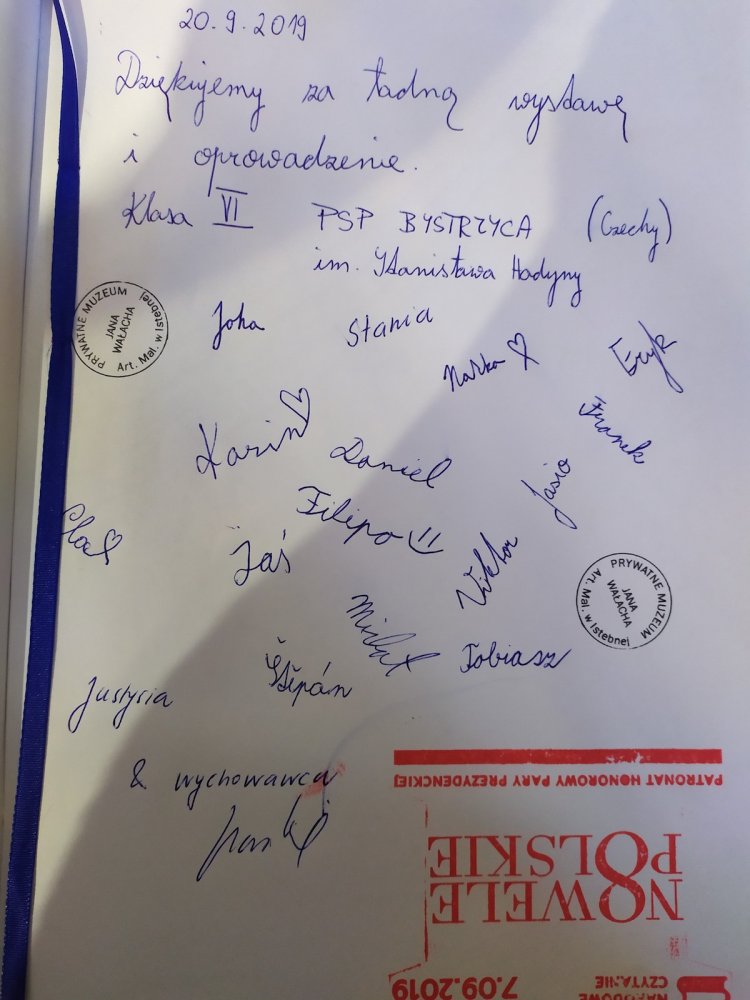 20.9.2019
Dziękujemy za ładną wystawę
i oprowadzenie.
Klasa VI PSP BYSTRZYCA (Czechy)
im. Stanisława Hadyny
PRYWATNE MUZEUM
JANA
WAŁACHA
Art. Mal. w Istebnej
Joha
Stania
Eryk
Franek
Karin
Daniel
Jasio
Filipo
Jaś
Viktor
PRYWATNE MUZEUM
JANA
WAŁACHA
Art. Mal. w Istebnej
Tobiasz
Štěpán
Justysia
& wychowawca
PATRONAT HONOROWY PARY PREZYDENCKIEJ
NOWELE
POLSKIE
7.09.2019
NARODOWE
CZYTANIE